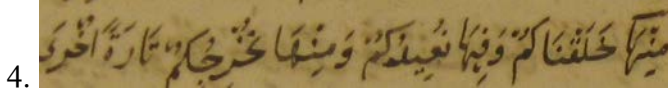 4. مِنْهَا خَلَقْنَاكُمْ وَفِيهَا نُعِيدُكُمْ وَمِنْهَا نُخْرِجُكُمْ تَارَةً أُخْرَى